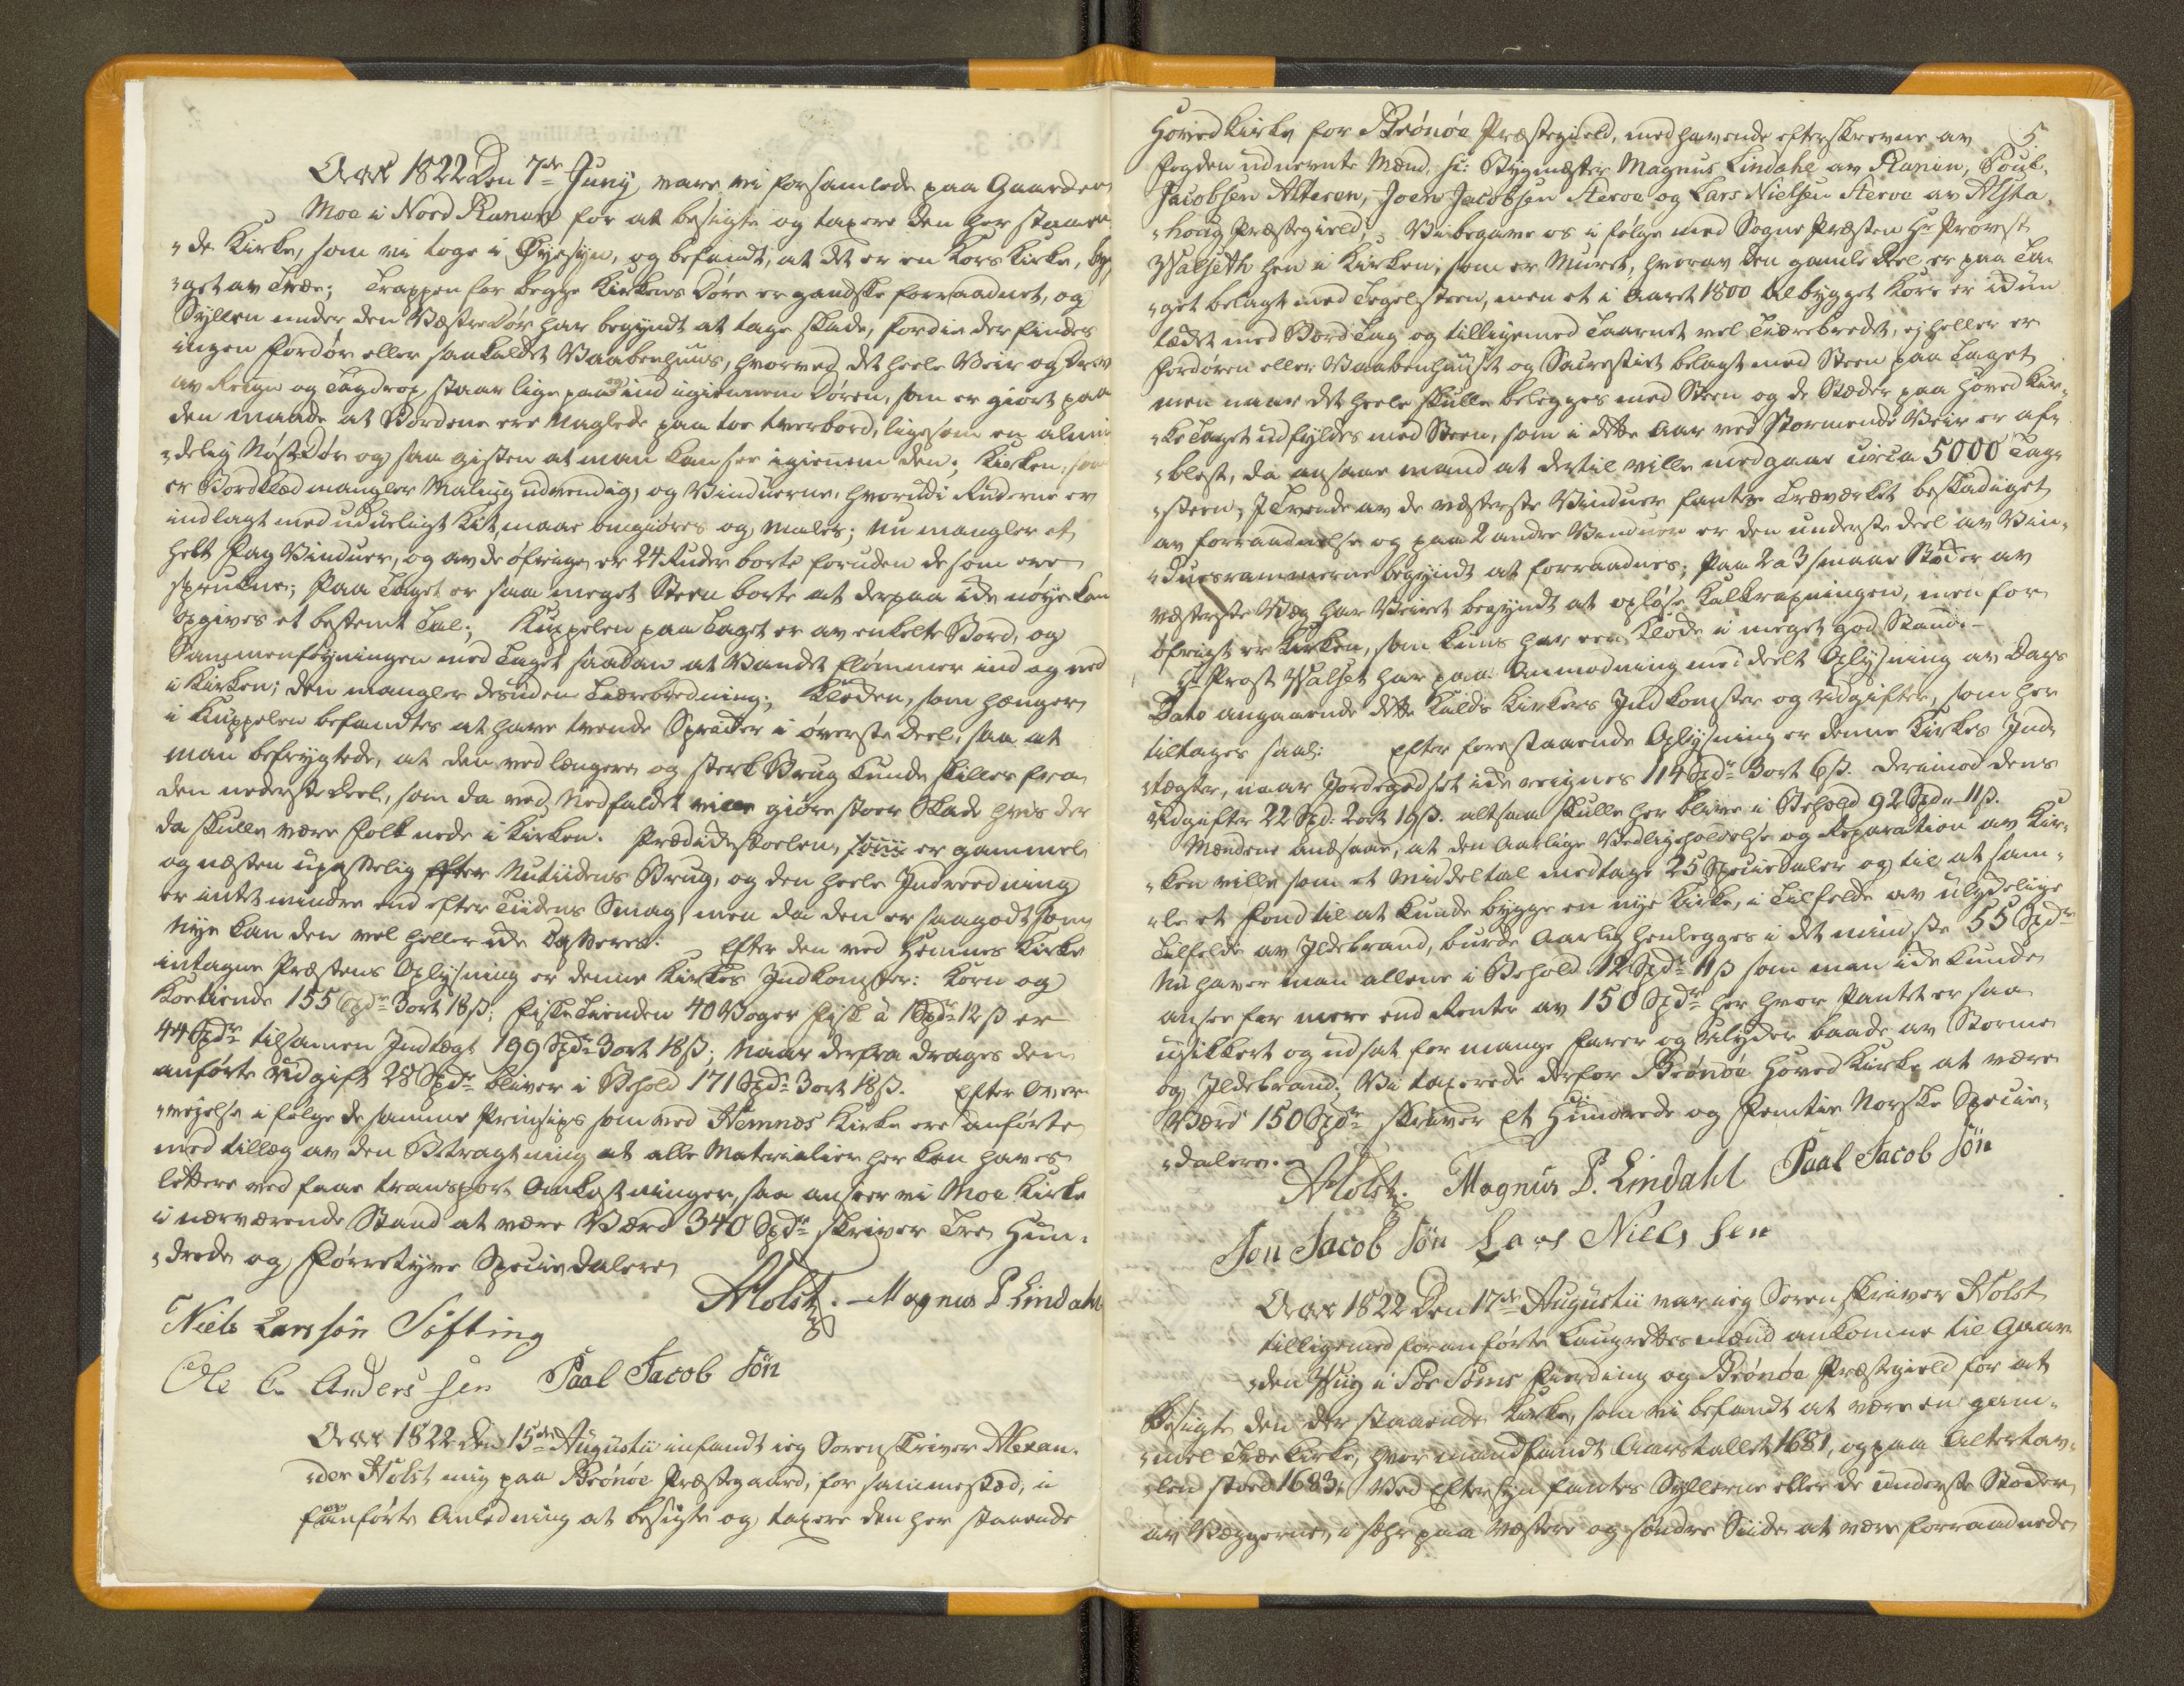 Aar 1822 Den 7de Juny vare vi forsamlede paa Gaarden
Moe i Nord Ranen for at besigte og taxere den her staaen
"de Kirke, som vi toge i Øyesyn, og befandt, at det er en Kors Kirke, byg
"get av Træe; Trappen for begge Kirkens Døre er gandske forraadnet, og
Syllen under den Væstre Dør har begyndt at tage skade, fordi der findes
ingen Fordør eller saakaldet Vaabenhuus, hvorved det heele Veir og Driv
av Reign og Tagdrop staar lige paa og ind igiennem Døren, som er giort paa
den maade at Bordene ere Naglede paa toe tverbord, ligesom en almin
"delig Nøst Dør og saa gisten at man kan see igiennem den; Kirken, som
er Bordklæd mangler Maling udvendig, og Vinduerne, hvorudi Ruderne er
indlagt med udueligt Kit, maae omgiøres og males; nu mangler et
helt Fag Vinduer, og av de øfrige er 24 Ruder borte foruden de som ere
sprukne; Paa Taget er saa meget Steen borte at derpaa ike nøye kan
opgives et bestemt Tal; Kuppelen paa Taget er av enkelte Bord, og
Sammenføyningen med Taget saadan at Vandet flømmer ind og ned
i Kirken; den mangler desuden Tiærebredning; Kloken, som hænger
i Kuppelen befandtes at have tvende Sprækker i øverste Deel, saa at
man befrygtede, at den ved længere og sterk Brug kunde skilles fra
den nederste Deel, som da ved Nedfaldet giøre stoer Skade hvis der
da skulle være Folk nede i Kirken. Prædikestoelen, er gammel
og næsten upasselig efter Nutiidens Brug, og den heele Indreedning
er intet mindre end efter Tiidens Smag, men da den er saagodt som
Nye kan den vel heller ike casseres. Efter den ved Hemnes Kirke
intagne Præstens Oplysning er denne Kirkes Indkomster: Korn og
Koetiende 155 Spdr 3ort 18ß; Fiske Tienden 40 Voger Fisk a 1 Spdr 12ß er
44 Spdr tilsamen Indtægt 199 Spdr 3ort 18ß; Naar derfra drages den
anførte Udgift 28 Spdr bliver i Behold 171 Spdr 3ort 18ß. Efter Over-
"vejelse i følge de samme Prinsips som ved Hemnæs Kirke ere anførte
med tillæg av den Betragtning at alle Materialier her kan haves
lettere ved faae transport Omkostninger, saa anseer vi Moe Kirke
i nærværende Stand at være Værd 340 Spdr skriver Tre Hun-
"drede og Førretyve Speciedalere
AHolst. Magnus P Lindahl
Niels Larssøn Søfting
Ole C. Anderssen Paal Jacob Søn
Aar 1822 Den 15de Augustii infandt ieg Sorenskriver Alexan-
"der Holst mig paa Brønøe Præstegaard, for sammestæd, i
foranførte Anledning at besigte og taxere den her staaende
5.
Hovedkirke for Brønøe Præstegield, medhavende efterskrevne av
Fogden udnevnte Mænd, sc: Bygmæster Magnus Lindahl av Ranen, Poul
Jacobsen Alteren, Joen Jacobsen Steroe og Lars Nielsen Steroe av Alsta-
"houg Præstegield; Vi begave os i følge med Sogne Præsten Hr Provst
Walseth hen i Kirken, som er Muret, hvorav den gamle Deel er paa Ta-
"get belagt med Tegelsteen, men et i Aaret 1800 tilbygget Kore er ikun
tækket med Bord Tag og tilligemed Taarnet vel Tiærebredt, ej heller er
Fordøren eller Vaabenhuuset og Sacrestiet belagt med Steen paa Taget,
men naar det heele skulle belegges med Steen og de Stæder paa Hoved Kir-
"ke Taget udfyldes med Steen, som i dette Aar ved stormende Veir er af-
"blæst, da ansaae mand at dertil ville medgaae circa 5000 Tag-
"steen, I Tvende av de væsterste Vinduer fantes Træværket beskadiget
av forraadnelse og paa 2 andre Vinduer er den underste Deel av Vin-
"duesrammerne begyndt at forraadnes; Paa 2 a 3 smaae Stæder av
væsterste Væg har Veiret begyndt at opløse Kalkrapningen, men for
øfrigt er Kirken, som kuns har een Kloke i meget god Stand.
Hr Prost Walset har paa Anmodning meddeelt Oplysning av Dags
Dato angaaende dette Kalds Kirkers Indkomster og udgifter, som her
tiltages saal: Efter forestaaende Oplysning er denne Kirkes Ind-
"tægter, naar Jordegodset ike reignes 114 Spdr 3ort 6ß. Derimod dens
Udgifter 22 Spd. 2ort 19ß. altsaa skulle her blive i Behold 92 Spdr " 11ß.
Mændene ansaae, at den Aarlige Vedligeholdelse og Reparation av Kir-
"ken ville som et middeltal medtage 25 Speciedaler og til at sam-
"le et Fond til at kunde bygge en nye Kirke, i Tilfelde av ulydelige
Tilfelde av Ildebrand, burde Aarlig henlegges i det mindste 55 Spdr
Nu haver man allene i Behold 12 Spdr 11ß som man ike kunde
ansee for mere end Renter av 150 Spdr her hvor Pantet er saa
usikkert og udsat for mange Farer og Ulyder baade av Storme
og Ildebrand; Vi taxerede derfor Brønøe Hoved Kirke at være
Værd 150 Spdr skriver Et Hundrede og Femtie Norske Specie-
"dalere.
AHolst. Magnus P. Lindahl Paal Jacob Søn
Jon Jacob Søn Lars Niels Sen
Aar 1822 Den 17de Augustii var ieg Sorenskriver Holst
tilligemed foranførte Laugrettesmænd ankomne til Gaar
"den Wiig i Sør Sømnes Fierding og Brønøe Præstegield for at
besigte den der staaende Kirke, som vi befandt at være en gam-
"mel Træe Kirke, hvor mand fandt Aarstallet 1681, og paa Altertav-
"len stoed 1683; Ved Eftersyn fantes Syllerne eller de underste Stoker
av Væggerne, i sær paa væstre og søndre Siide at være forraadnede